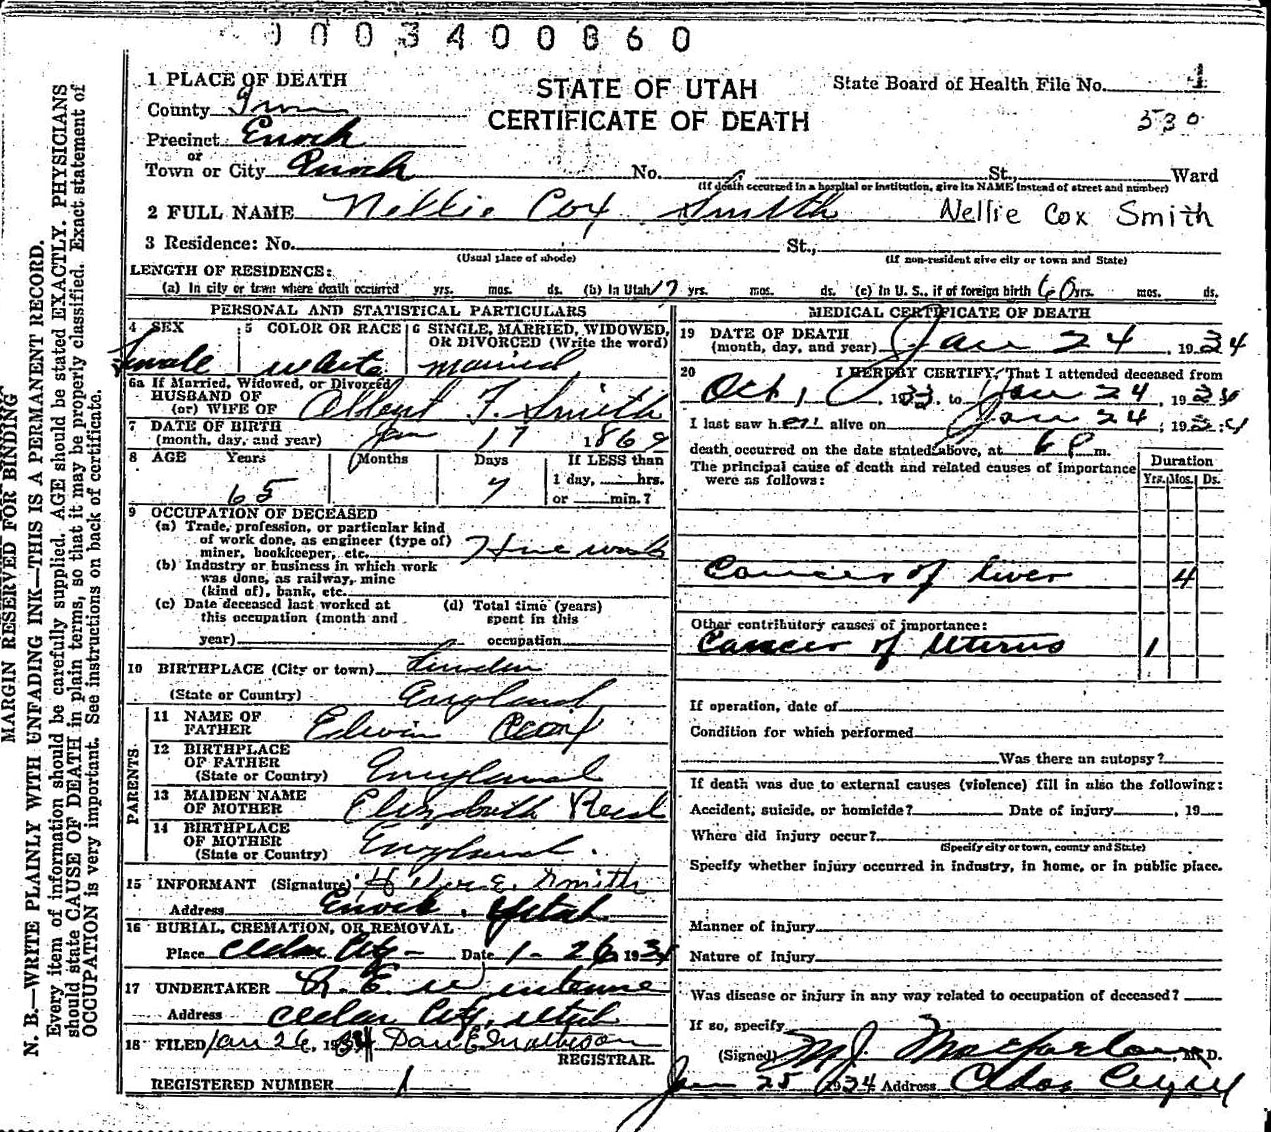 0003400860
1 PLACE OF DEATH
STATE OF UTAH
CERTIFICATE OF DEATH
State Board of Health File No. 1
530
County Iron
Precinct Enoch
or
Town or City Enoch No. St., Ward
(If death occurred in a hospital or institution, give its NAME instead of street and number)
2 FULL NAME Nellie Cox Smith Nellie Cox Smith
3 Residence: No. St.,
(Usual place of abode) (If non-resident give city or town and State)
LENGTH OF RESIDENCE:
(a) In city or town where death occurred yrs. mos. ds. (b) In Utah 17 yrs. mos. ds. (c) In U. S., if of foreign birth 60 yrs. mos. ds.
PERSONAL AND STATISTICAL PARTICULARS
4 SEX 5 COLOR OR RACE 6 SINGLE, MARRIED, WIDOWED, OR DIVORCED (Write the word)
Female white married
6a If Married, Widowed, or Divorced
HUSBAND OF
(or) WIFE OF Albert F. Smith
7 DATE OF BIRTH
(month, day, and year) Jan 17 1869
8 AGE Years Months Days If LESS than
1 day, hrs.
65 7 or min.?
9 OCCUPATION OF DECEASED
(a) Trade, profession, or particular kind
of work done, as engineer (type of)
miner, bookkeeper, etc. House work
(b) Industry or business in which work
was done, as railway, mine
(kind of), bank, etc.
(c) Date deceased last worked at (d) Total time (years)
this occupation (month and spent in this
year) occupation
10 BIRTHPLACE (City or town) London
(State or Country) England
PARENTS
11 NAME OF
FATHER Edwin Cox
12 BIRTHPLACE
OF FATHER
(State or Country) England
13 MAIDEN NAME
OF MOTHER Elizabeth Reed
14 BIRTHPLACE
OF MOTHER
(State or Country) England.
15 INFORMANT (Signature) E. Smith
Address Enoch, Utah
16 BURIAL, CREMATION, OR REMOVAL
Place Cedar City - Date 1-26 1934
17 UNDERTAKER R. E.
Address Cedar City, Utah
18 FILED Jan 26, 1934
REGISTRAR.
REGISTERED NUMBER 1
MEDICAL CERTIFICATE OF DEATH
19 DATE OF DEATH
(month, day, and year) Jan 24, 1934
20 I HEREBY CERTIFY, That I attended deceased from
Oct 1, 1933, to Jan 24, 1934
I last saw her alive on Jan 24, 1934
death occurred on the date stated above, at 6 P m.
The principal cause of death and related causes of importance
were as follows:
Duration
Yrs. Mos. Ds.
Cancer of liver 4
Other contributory causes of importance:
Cancer of Uterus 1
If operation, date of
Condition for which performed
Was there an autopsy?
If death was due to external causes (violence) fill in also the following:
Accident, suicide, or homicide? Date of injury , 19
Where did injury occur?
(Specify city or town, county and State)
Specify whether injury occurred in industry, in home, or in public place.
Manner of injury
Nature of injury
Was disease or injury in any way related to occupation of deceased?
If so, specify
(Signed) M J. Macfarlane, M. D.
Jan 25 1934 Address Cedar City
MARGIN RESERVED FOR BINDING
N. B.—WRITE PLAINLY WITH UNFADING INK—THIS IS A PERMANENT RECORD.
Every item of information should be carefully supplied. AGE should be stated EXACTLY. PHYSICIANS
should state CAUSE OF DEATH in plain terms, so that it may be properly classified. Exact statement of
OCCUPATION is very important. See instructions on back of certificate.